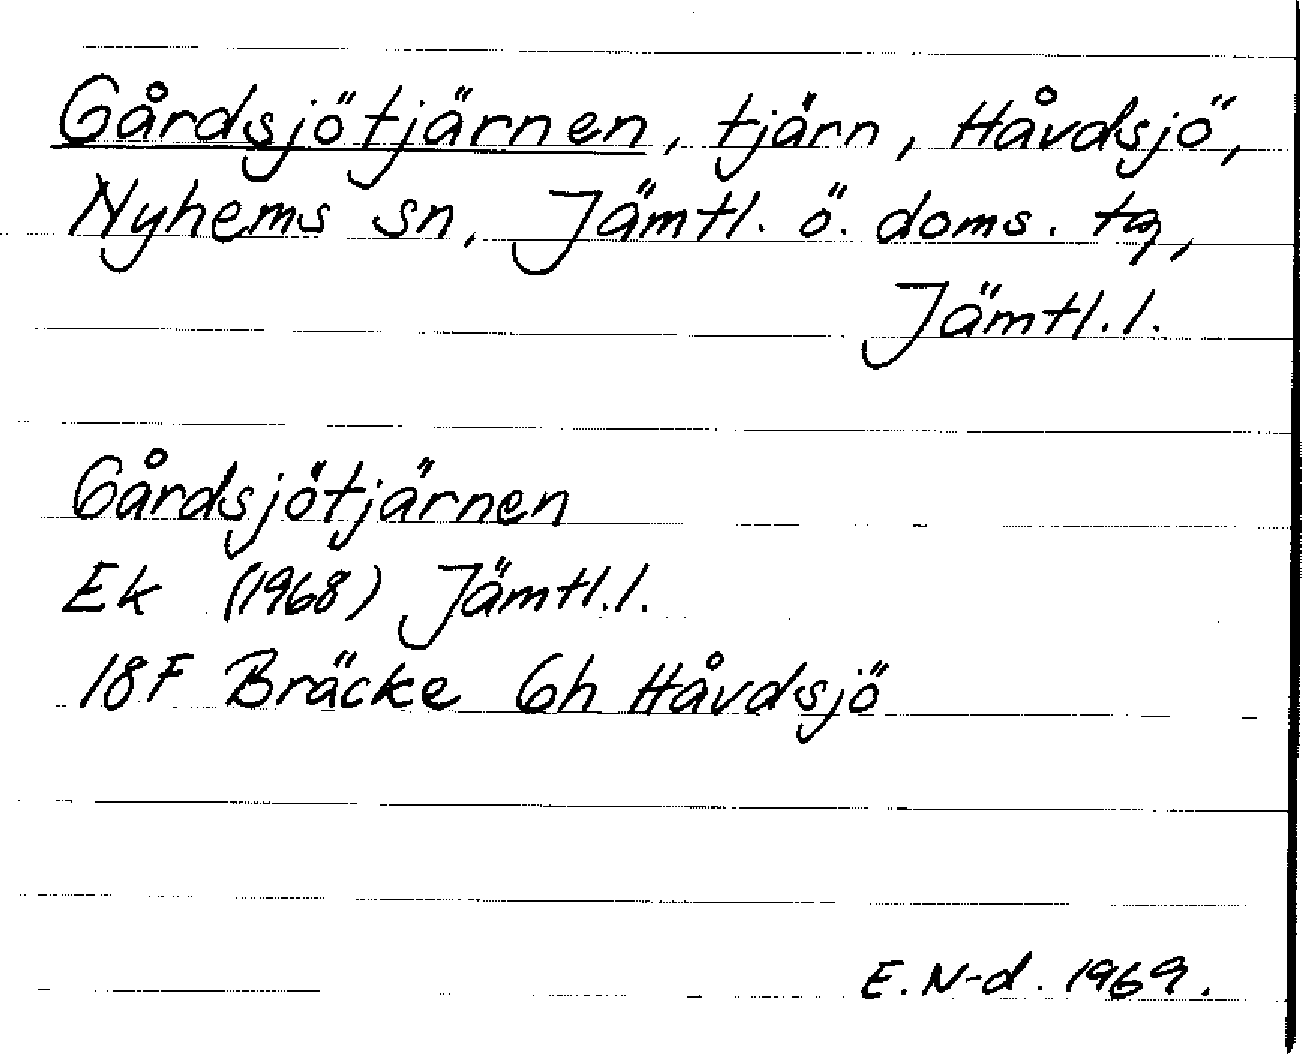 Gårdsjötjärnen, tjärn, Håvdsjö,
Nyhems sn, Jämtl. ö. doms. tg,
Jämtl. l.
Gårdsjötjärnen
Ek (1968) Jämtl. l.
18F Bräcke 6h Håvdsjö
E. N-d. 1969.